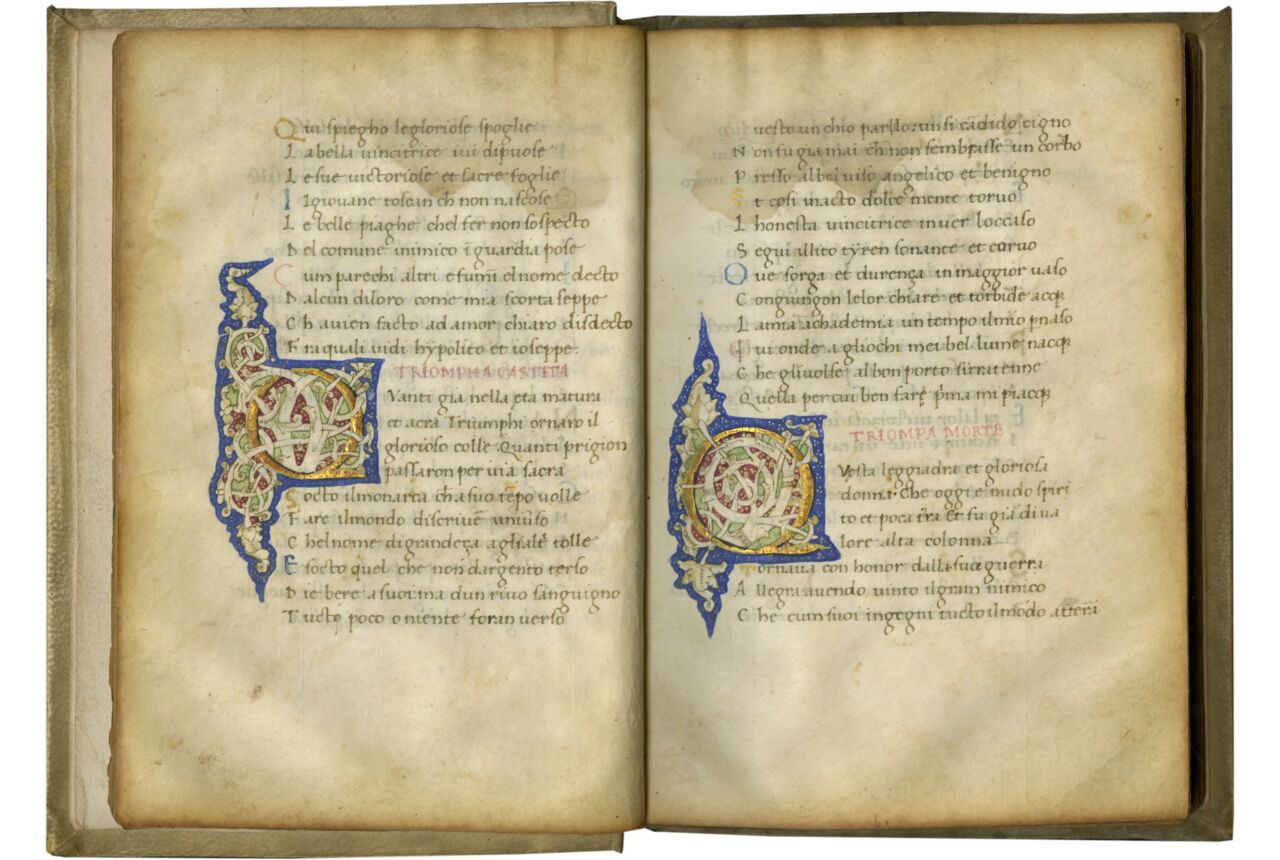 Qui spiegho le gloriose spoglie
La bella vincitrice iui dipuose
Le sue victoriose et sacre foglie
Il giouane toscan ch̄ non nascose
Le belle piaghe chel fer non sospecto
Del comune inimico ī guardia pose
Cum parechi altri e fumi el nome decto
Dalcun di loro come mia scorta seppe
Ch auien facto ad amor chiaro disdecto
Fra quali uidi hypolito et ioseppe
TRIOMPHA CASTETA
Quanti gia nella eta matura
et acra Triumphi ornaro il
glorioso colle Quanti prigion
passaron per uia sacra
Socto il monarca ch̄ a suo tēpo uolle
Fare il mondo discriuē
Chel nome di grandeça agli alt̄ tolle
E socto quel che non dargento terso
Die bere a suoi ma dun riuo sanguigno
Tucti poco o niente foran uerso
Questo un chio parllo: un si cādido cigno
Non fu gia mai ch̄ non sembrasse un corbo
Presso al bel uiso angelico et benigno
Et cosi in acto dolce mente toruo
Lhonesta uincitrice inuer loccaso
Segui il lito tÿren sonante et coruo
Oue sorga et durença in maggior uaso
Congiungon lelor chiare et torbide acq̄
La mia achademia un tempo il mio pnaso
Iui onde a gliochi mei bel lume nacq̄
Che gli uolse al bon porto si ratenne
Quella per cui ben fare p̄ma mi piacq̄
TRIOMPA MORTE
Questa leggiadra et gloriosa
donna: che oggi e nudo spiri
to et poca tr̄a Et fu gia di ua
lore alta colonna
Tornaua con honor dalla sua guerra
Allegra auendo uinto il gram nimico
Che cum suoi ingegni tucto il mōdo atterra